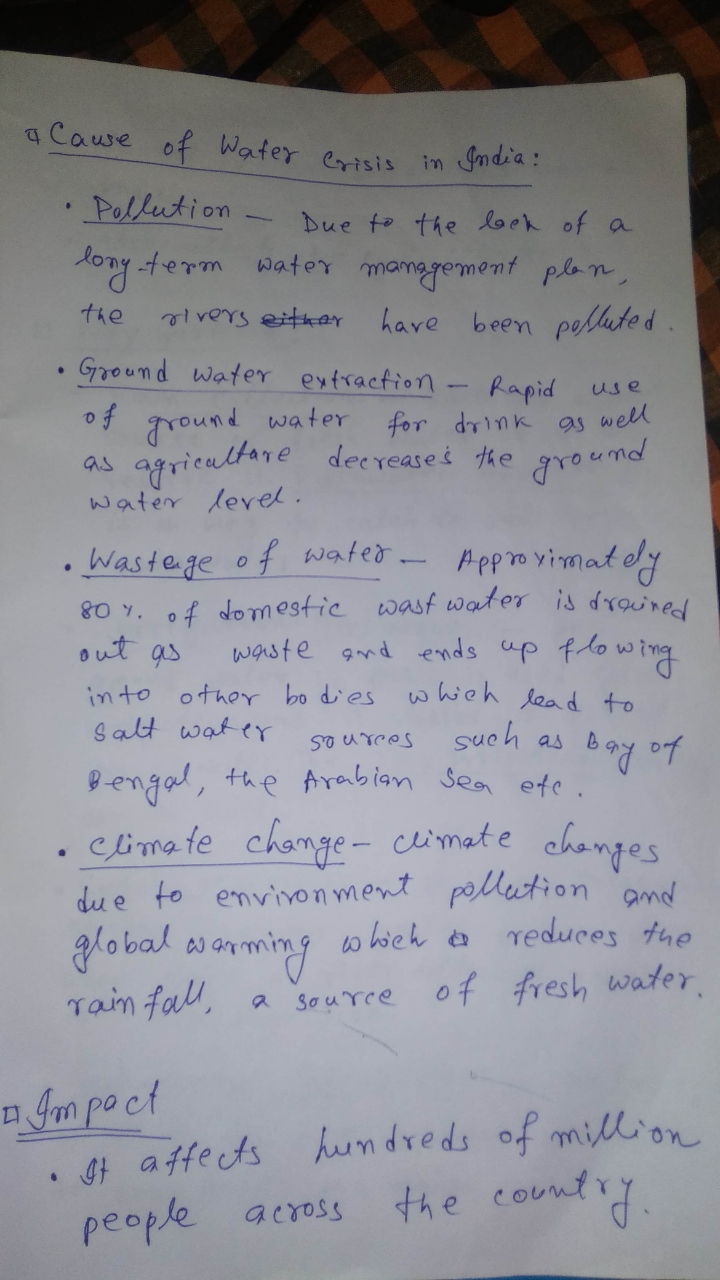 Cause of Water Crisis in India:
• Pollution — Due to the lack of a
long-term water management plan,
the rivers either have been polluted.
• Ground water extraction — Rapid use
of ground water for drink as well
as agriculture decreases the ground
water level.
• Wastage of water — Approximately
80%. of domestic wast water is drained
out as waste and ends up flowing
into other bodies which lead to
salt water sources such as Bay of
Bengal, the Arabian Sea etc.
• Climate change — climate changes
due to environment pollution and
global warming which reduces the
rainfall, a source of fresh water.
Impact
• It affects hundreds of million
people across the country.